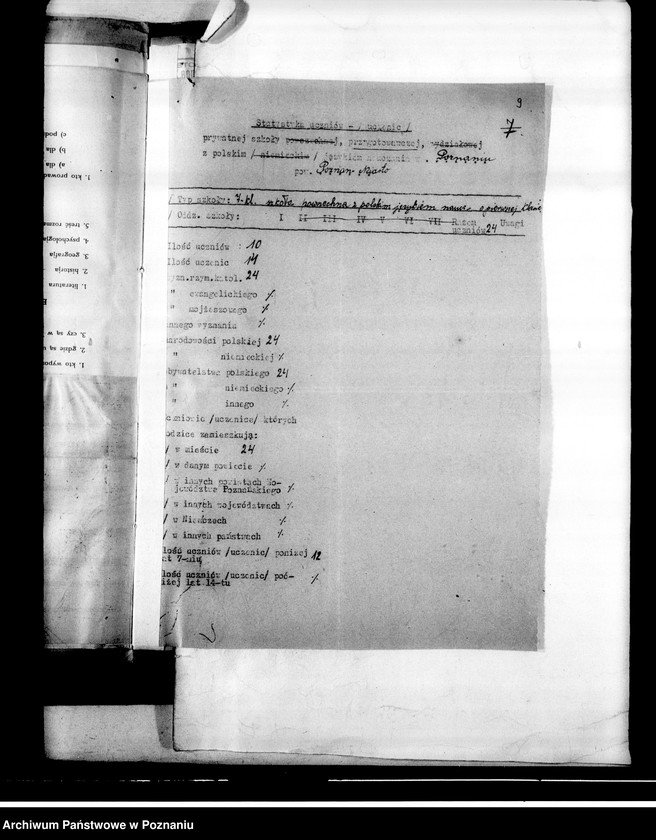 9
7
Statystyka uczniów - / uczenic /
prywatnej szkoły powszechnej, przygotowawczej, wydziałowej
z polskim / niemieckim / językiem nauczania w . Poznaniu
pow. Poznań-Miasto
/ Typ szkoły: 7. kl. szkoła powszechna z polskim językiem naucz. o pierwszej
/ Oddz. szkoły: I II III IV V VI VII Razem Uwagi
uczniów 24
lość uczniów : 10
lość uczenic 14
yzn.rzym.katol. 24
" ewangelickiego %
" mojżeszowego %
nnego wyznania %
narodowości polskiej 24
" niemieckiej %
bywatelstwa polskiego 24
" niemieckiego %
" innego %
czniowie /uczenice/ których
odzice zamieszkują:
/ w mieście 24
/ w danym powiecie %
/ w innych powiatach Wo-
jewództwa Poznańskiego %
/ w innych województwach %
/ w Niemczech %
/ w innych państwach %
lość uczniów /uczenic/ poniżej 12
at 7-miu
lość uczniów /uczenic/ pod-
iżej lat 14-tu %
c) pods
b) dla
a) dla
1. kto prowad
5. treść rozmó
4. psychologja
3. geografja
2. historja
1. literatura
3. czy są w
2. gdzie są u
1. kto wypoż
Archiwum Państwowe w Poznaniu